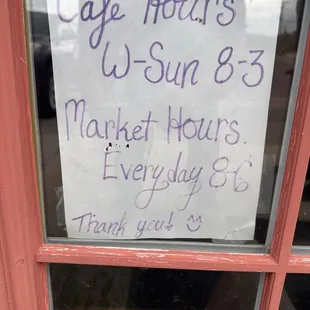 Cafe Hours
W-Sun 8-3
Market Hours
Everyday 8-6
Thank you!